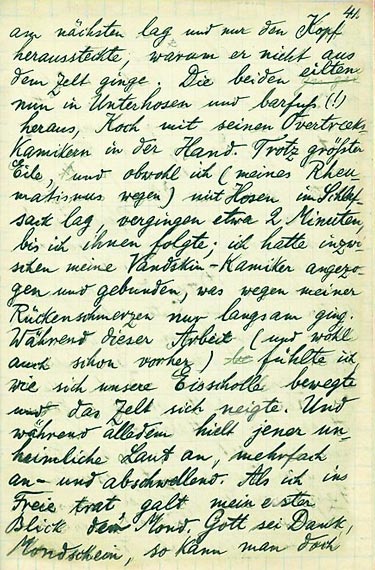 41.
am nächsten lag und nur den Kopf
heraussteckte, warum er nicht aus
dem Zelt ginge. Die beiden eilten
nun in Unterhosen und barfuß (!)
heraus, Koch mit seinen Overtræks-
Kamikern in der Hand. Trotz größter
Eile, und obwohl ich (meines Rheu-
matismus wegen) mit Hosen im Schlaf-
sack lag, vergingen etwa 2 Minuten,
bis ich ihnen folgte; ich hatte inzwi-
schen meine Vandskin-Kamiker angezo-
gen und gebunden, was wegen meiner
Rückenschmerzen nur langsam ging.
Während dieser Arbeit (und wohl
auch schon vorher) fühlte ich
wie sich unsere Eisscholle bewegte
und das Zelt sich neigte. Und
während alledem hielt jener un-
heimliche Laut an, mehrfach
an- und abschwellend. Als ich ins
Freie trat galt mein erster
Blick dem Mond. Gott sei Dank,
Mondschein, so kann man doch